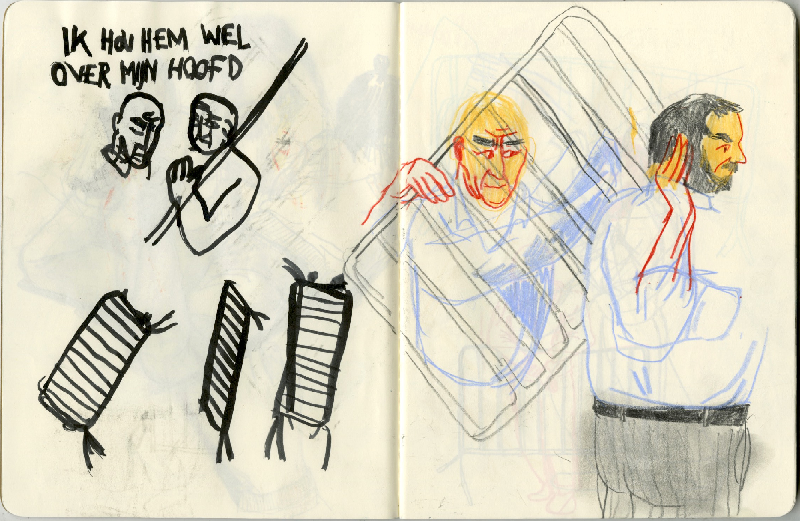 IK HOU HEM WEL
OVER MIJN HOOFD